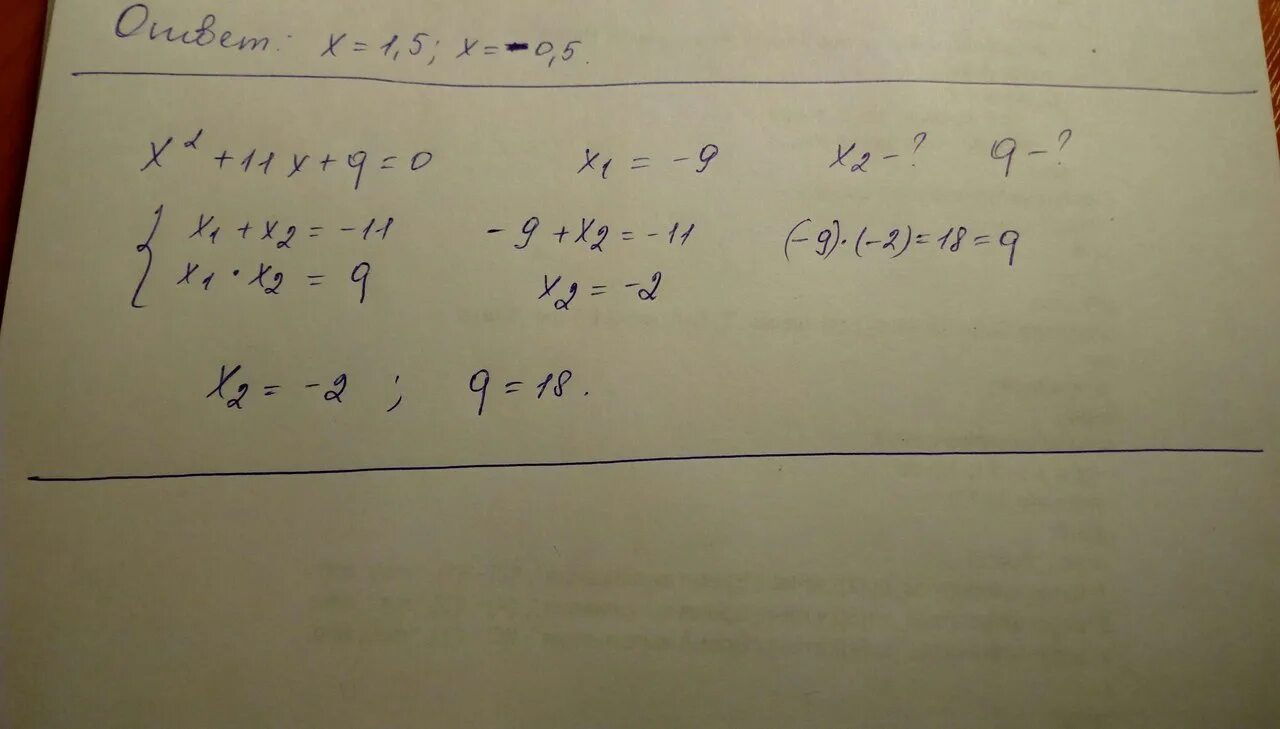 Ответ: x = 1,5; x = -0,5.
x² + 11x + q = 0 x₁ = -9 x₂ - ? q - ?
{ x₁ + x₂ = -11 -9 + x₂ = -11 (-9)·(-2) = 18 = q
x₁ · x₂ = q x₂ = -2
x₂ = -2 ; q = 18.